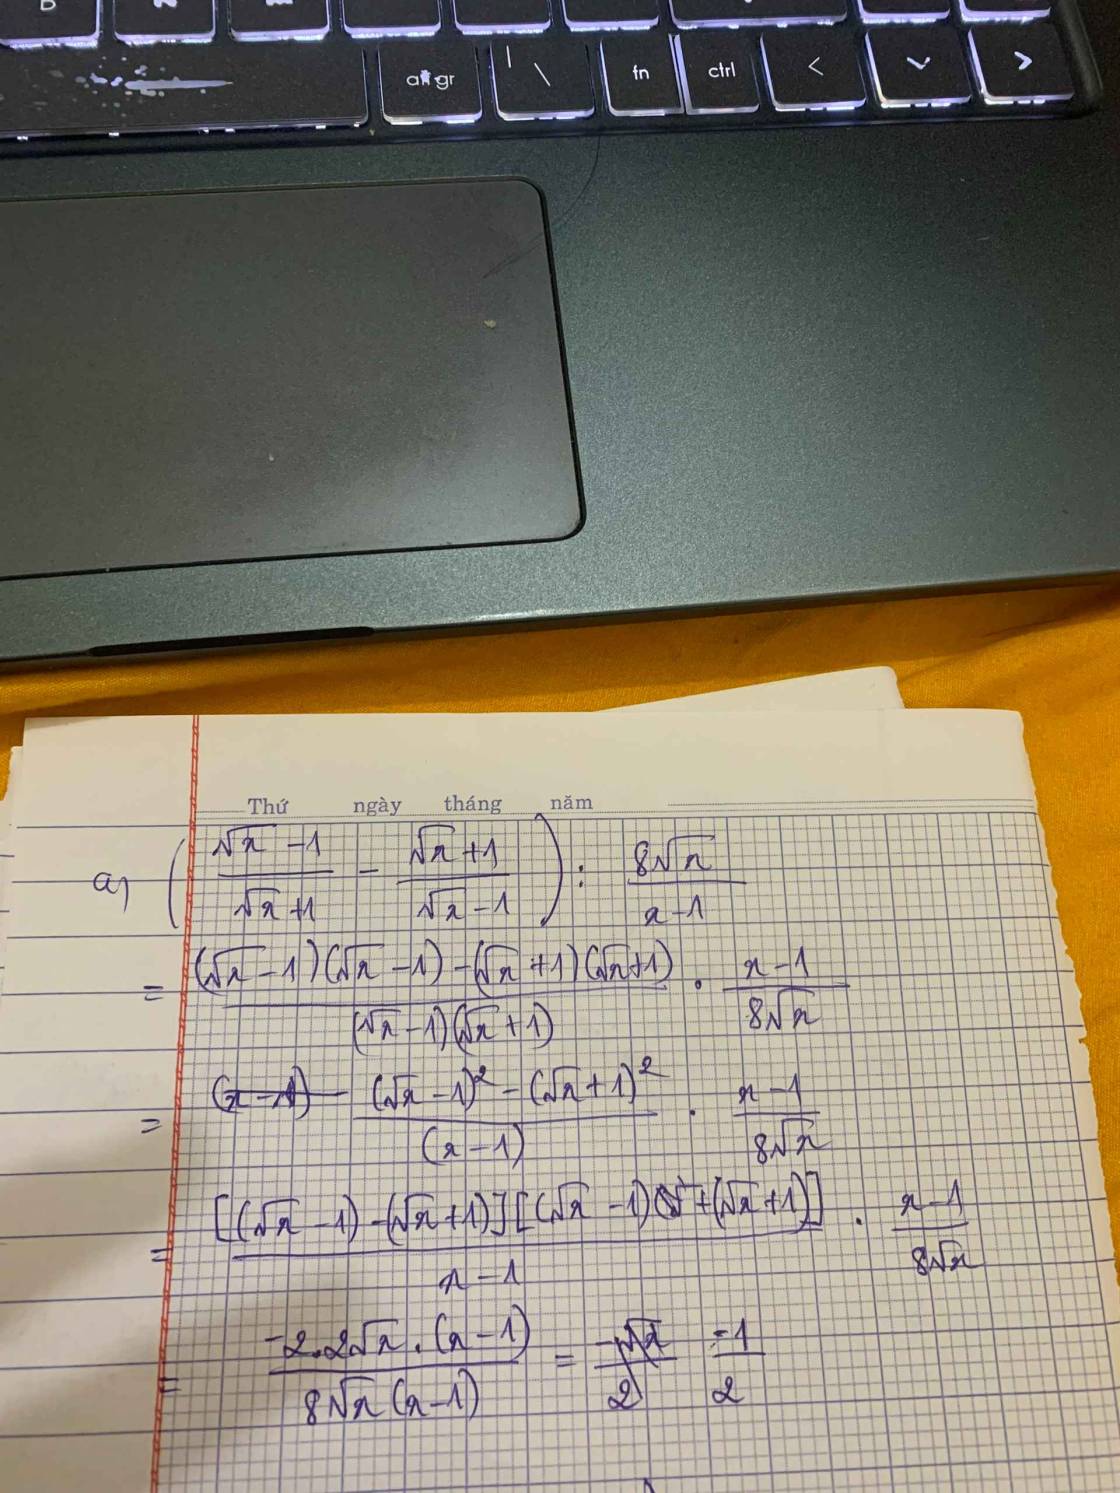 alt gr \ | fn ctrl < >
Thứ ngày tháng năm
a, ( (√x - 1)/(√x + 1) - (√x + 1)/(√x - 1) ) : 8√x/(x - 1)
= ((√x - 1)(√x - 1) - (√x + 1)(√x + 1))/((√x - 1)(√x + 1)) . (x - 1)/(8√x)
= ((√x - 1)² - (√x + 1)²)/(x - 1) . (x - 1)/(8√x)
= [(√x - 1) - (√x + 1)][(√x - 1) + (√x + 1)]/(x - 1) . (x - 1)/(8√x)
= (-2.2√x.(x - 1))/(8√x(x - 1)) = -1/2